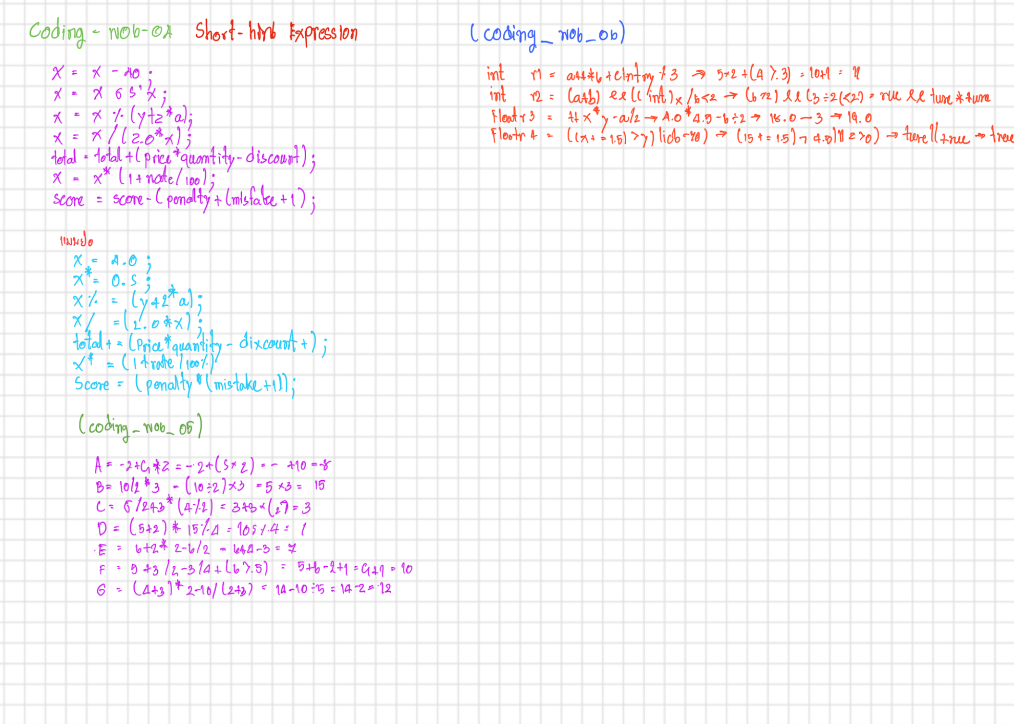 Coding - WOb-02 Short-hand Expression
X = x - 40 ;
x = x 0.5 * x ;
x = x % (y+z*a);
x = x / (2.0*x);
total = total + (price*quantity - discount);
x = x* (1+rate/100);
score = score - (penalty + (mistake +1);
แบบย่อ
x = 4.0 ;
x* = 0.5 ;
x% = (y+2*a);
x/ = (2.0*x);
total + = (price*quantity - dixcount+);
x* = (1+rate/100%)
Score = (penalty*(mistake+1));
(coding_wob_05)
A = -2+5*2 = -2+(5*2) = - +10 = 8
B = 10/2*3 - (10÷2)×3 = 5×3 = 15
C = 5/2+3*(4%2) = 3+3*(2) = 3
D = (5+2) * 15%4 = 105%4 = 1
E = 6+2*2-6/2 = 6+4-3 = 7
F = 5+3/2-3/4+(6%5) = 5+6-2+1 = 9+1 = 10
G = (4+3)*2-10/(2+3) = 14-10÷5 = 14-2 = 12
(coding_wob_06)
int r1 = a++*b + % 3 → 5×2+(4%3) = 10+1 = 11
int r2 = (a+b) && ((int)x/b<2 → && (3÷2(<2) = rue && ture * ture
Floatr3 = ++x*y - a/2 → 4.0*4.5-6÷2 → 18.0-3 → 19.0
Floatr4 = ((x+=1.5)>y) → (15+=1.5) → ture||true → true